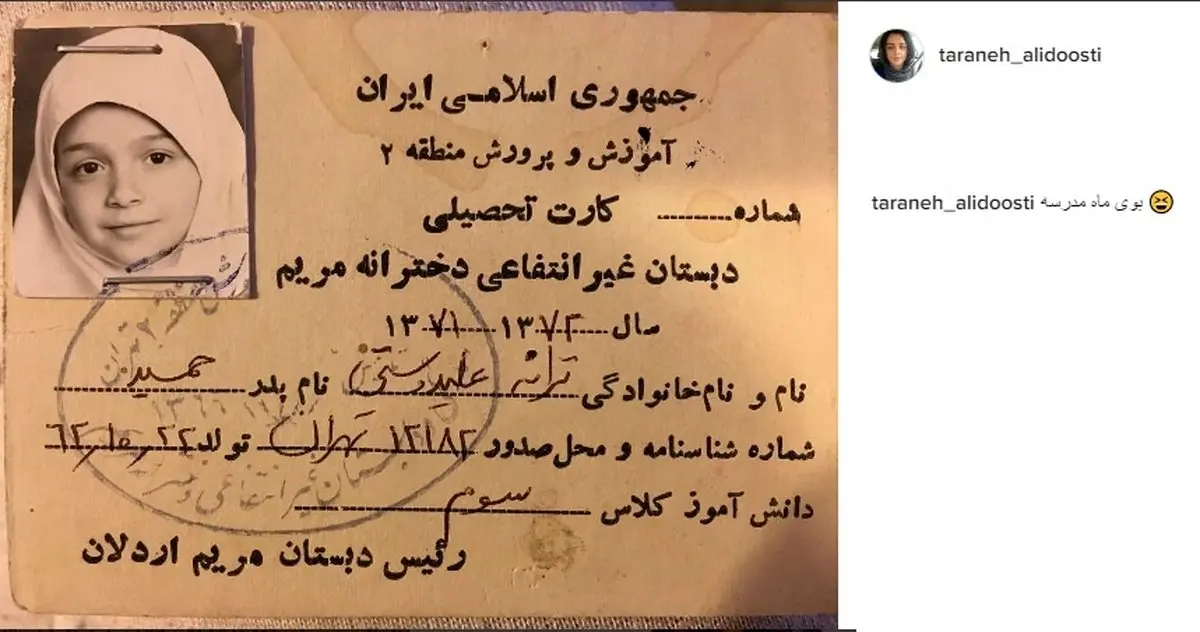 جمهوری اسلامی ایران
آموزش و پرورش منطقه ۲
شماره ............ کارت تحصیلی
دبستان غیر انتفاعی دخترانه مریم
سال ۱۳۷۲ ـ ۱۳۷۱
نام و نام‌خانوادگی ترانه علیدوستی نام پدر حمید
شماره شناسنامه و محل صدور ۱۲۱۸۲ تهران تولد ۶۲٫۱۰٫۲۲
دانش آموز کلاس سوم
رئیس دبستان مریم اردلان
taraneh_alidoosti
taraneh_alidoosti بوی ماه مدرسه 😆